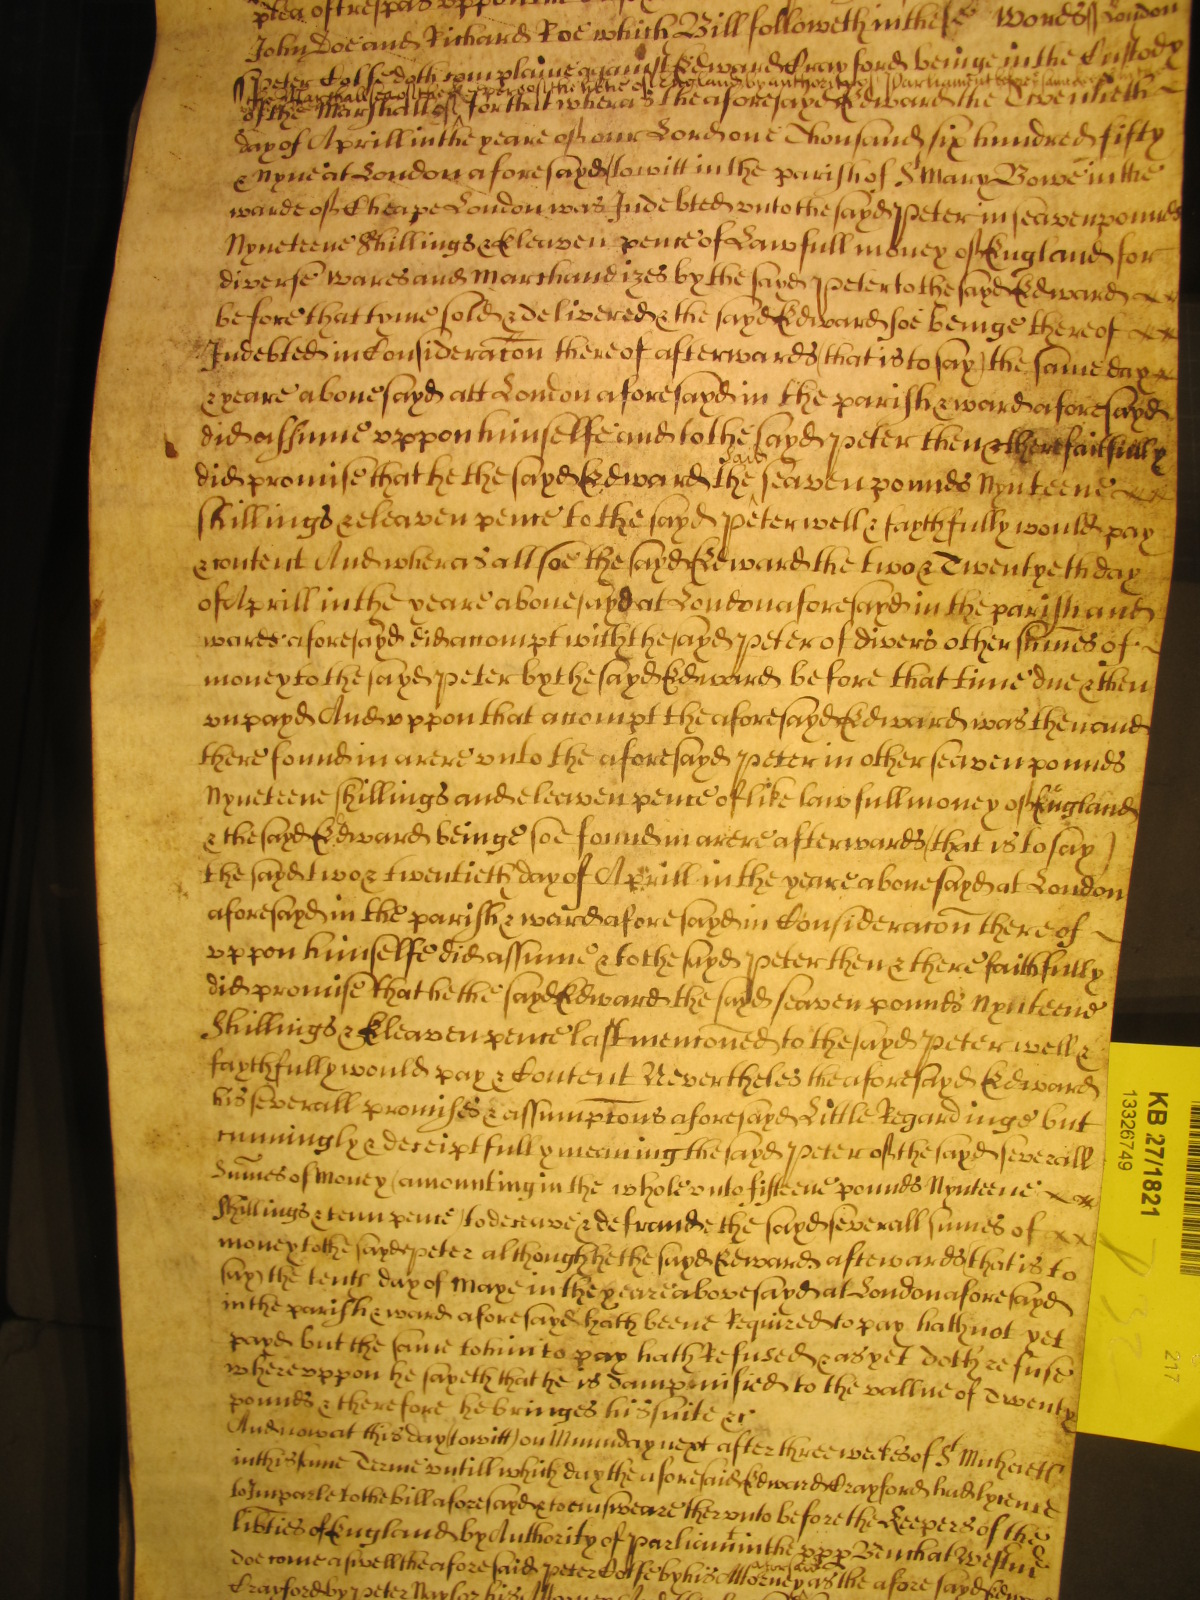 plea of trespas uppon the
John Doe and Richard Roe which Bill followeth in these words London
Peter Colse doth complaine against Edward Crayford beinge in the Custody
of the Marshall &c for that wheras the aforesayd Edward the Twentieth
day of Aprill in the yeare of our Lord one Thousand six hundred fifty
& Nyne at London aforesayd (to witt in the parish of St Mary Bowe in the
warde of Cheape London was Indebted unto the sayd Peter in seaven pounds
Nyneteene Shillings & Eleaven pence of Lawfull money of England for
diverse wares and Marchandizes by the sayd Peter to the sayd Edward
before that tyme sold & delivered & the sayd Edward soe beinge thereof
Indebted in Consideracon thereof afterwards (that is to say) the same day
& yeare abovesayd att London aforesayd in the parish & ward aforesayd
did assume uppon himselfe and to the sayd Peter then & there faithfully
did promise that he the sayd Edward the said seaven pounds Nynteene
shillings & eleaven pence to the sayd Peter well & faythfully would pay
& content And wheras allsoe the sayd Edward the two & Twentyeth day
of Aprill in the yeare abovesayd at London aforesayd in the parish and
warde aforesayd did accompt with the sayd Peter of divers other sumes of
money to the sayd Peter by the sayd Edward before that time due & then
unpayd And uppon that accompt the aforesayd Edward was then and
there found in arere unto the aforesayd Peter in other seaven pounds
Nyneteene shillings and eleaven pence of like lawfull money of England
& the sayd Edward beinge soe found in arere afterwards (that is to say)
the sayd two & twentieth day of Aprill in the yeare abovesayd at London
aforesayd in the parish & ward aforesayd in Consideracon thereof
uppon himselfe did assume & to the sayd Peter then & there faithfully
did promise that he the sayd Edward the sayd seaven pounds Nynteene
Shillings & Eleaven pence last mencioned to the sayd Peter well &
faythfully would pay & Content Nevertheles the aforesayd Edward
his severall promises & assumptions aforesayd Little Regardinge but
cunningly & deceiptfully meaning the sayd Peter of the sayd severall
Sumes of Money (amounting in the whole unto fifteene pounds Nynteene
Shillings & tenn pence) to deceave & defraude the sayd severall sumes of
money to the sayd Peter although he the sayd Edward afterwards (that is to
say) the tenth day of Maye in the yeare abovesayd at London aforesayd
in the parish & ward aforesayd hath beene Required to pay hath not yet
payd but the same to him to pay hath Refused & as yet doth refuse
whereuppon he sayeth that he is dampnified to the vallue of Twenty
pounds & therefore he bringes his suite &c
And now at this day (to witt) on Munday next after three weekes of St Michaell
in this same Terme untill which day the aforesaid Edward Crayford had lycence
to Imparle to the bill aforesayd & to answeare therunto before the Keepers of the
libties of England by Authority of Parliament in the upp Bench at Westm
doe come aswell the aforesaid Peter Colse by his Attorney as the aforesayd Edward
Crayford by Peter Naylor his Attorney And the
KB 27/1821
13326749
217